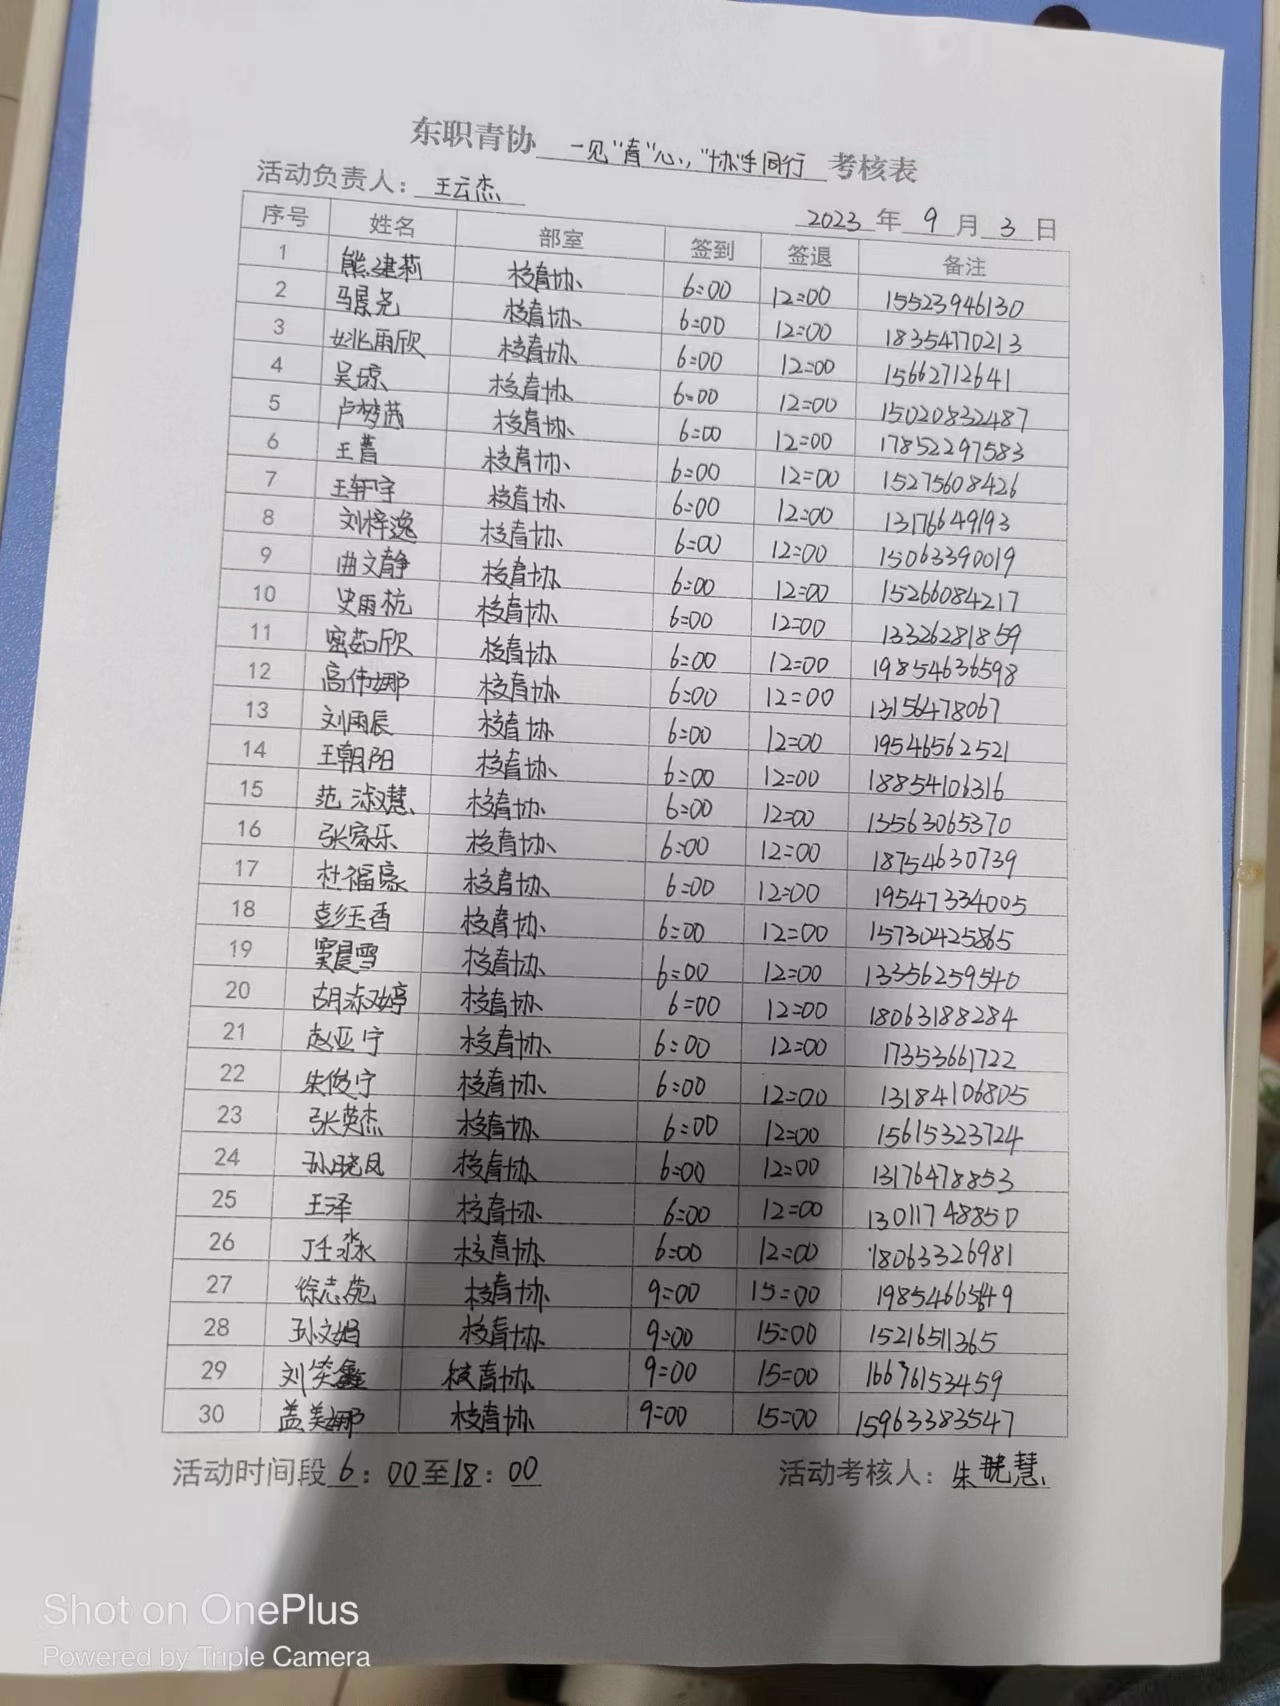 东职青协 一见"青"心,"协"手同行 考核表
活动负责人: 王云杰
2023 年 9 月 3 日
序号 姓名 部室 签到 签退 备注
1 熊建莉 校青协 6:00 12:00 15523946130
2 马景尧 校青协 6:00 12:00 18354770213
3 姚雨欣 校青协 6:00 12:00 15662712641
4 吴琼 校青协 6:00 12:00 15020832487
5 卢梦茜 校青协 6:00 12:00 17852297583
6 王菁 校青协 6:00 12:00 15275608426
7 王轩宇 校青协 6:00 12:00 13176649193
8 刘梓逸 校青协 6:00 12:00 15063390019
9 曲文静 校青协 6:00 12:00 15266084217
10 史雨杭 校青协 6:00 12:00 13326281859
11 密茹欣 校青协 6:00 12:00 19854636598
12 高伟娜 校青协 6:00 12:00 13156478067
13 刘雨辰 校青协 6:00 12:00 19546562521
14 王朝阳 校青协 6:00 12:00 18854106316
15 范淑慧 校青协 6:00 12:00 13563065370
16 张家乐 校青协 6:00 12:00 18754630739
17 杜福豪 校青协 6:00 12:00 19547334005
18 彭玉香 校青协 6:00 12:00 15730425865
19 窦晨雪 校青协 6:00 12:00 13356259540
20 胡淑婷 校青协 6:00 12:00 18063188284
21 赵亚宁 校青协 6:00 12:00 17353661722
22 朱俊宁 校青协 6:00 12:00 13184106805
23 张英杰 校青协 6:00 12:00 15615323724
24 孙晓凤 校青协 6:00 12:00 13176478853
25 王泽 校青协 6:00 12:00 13011748850
26 丁壬淼 校青协 6:00 12:00 18063326981
27 徐志苑 校青协 9:00 15:00
28 孙文娟 校青协 9:00 15:00 15216511365
29 刘笑鑫 校青协 9:00 15:00 16676153459
30 盖美娜 校青协 9:00 15:00 15963383547
活动时间段 6:00至18:00
活动考核人: 朱晓慧
Shot on OnePlus
Powered by Triple Camera